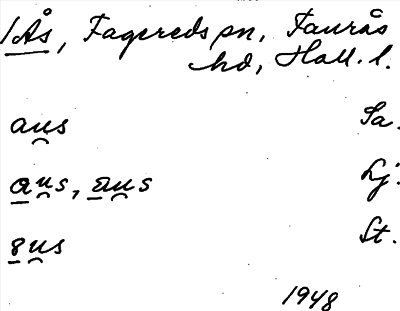 /Ås, Fagereds sn, Faurås
hd, Hall. l.
aus Sa.
aus, aus Lj.
8us St.
1948